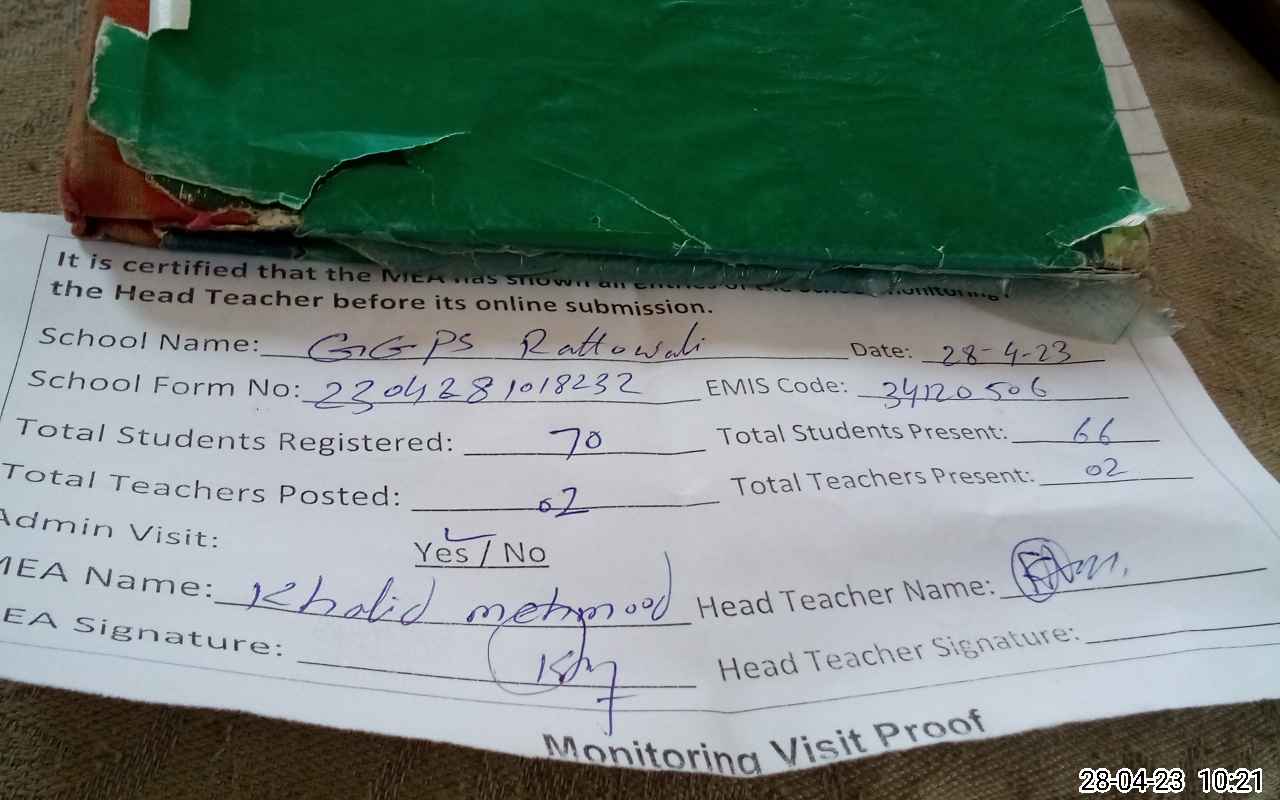 It is certified that the MEA has shown all entries of the
the Head Teacher before its online submission.
School Name: GGPS Rattowali Date: 28-4-23
School Form No: 2304281018232 EMIS Code: 34120506
Total Students Registered: 70 Total Students Present: 66
Total Teachers Posted: 02 Total Teachers Present: 02
Admin Visit: Yes / No
MEA Name: Khalid mehmood Head Teacher Name:
EA Signature: Head Teacher Signature:
Monitoring Visit Proof
28-04-23 10:21